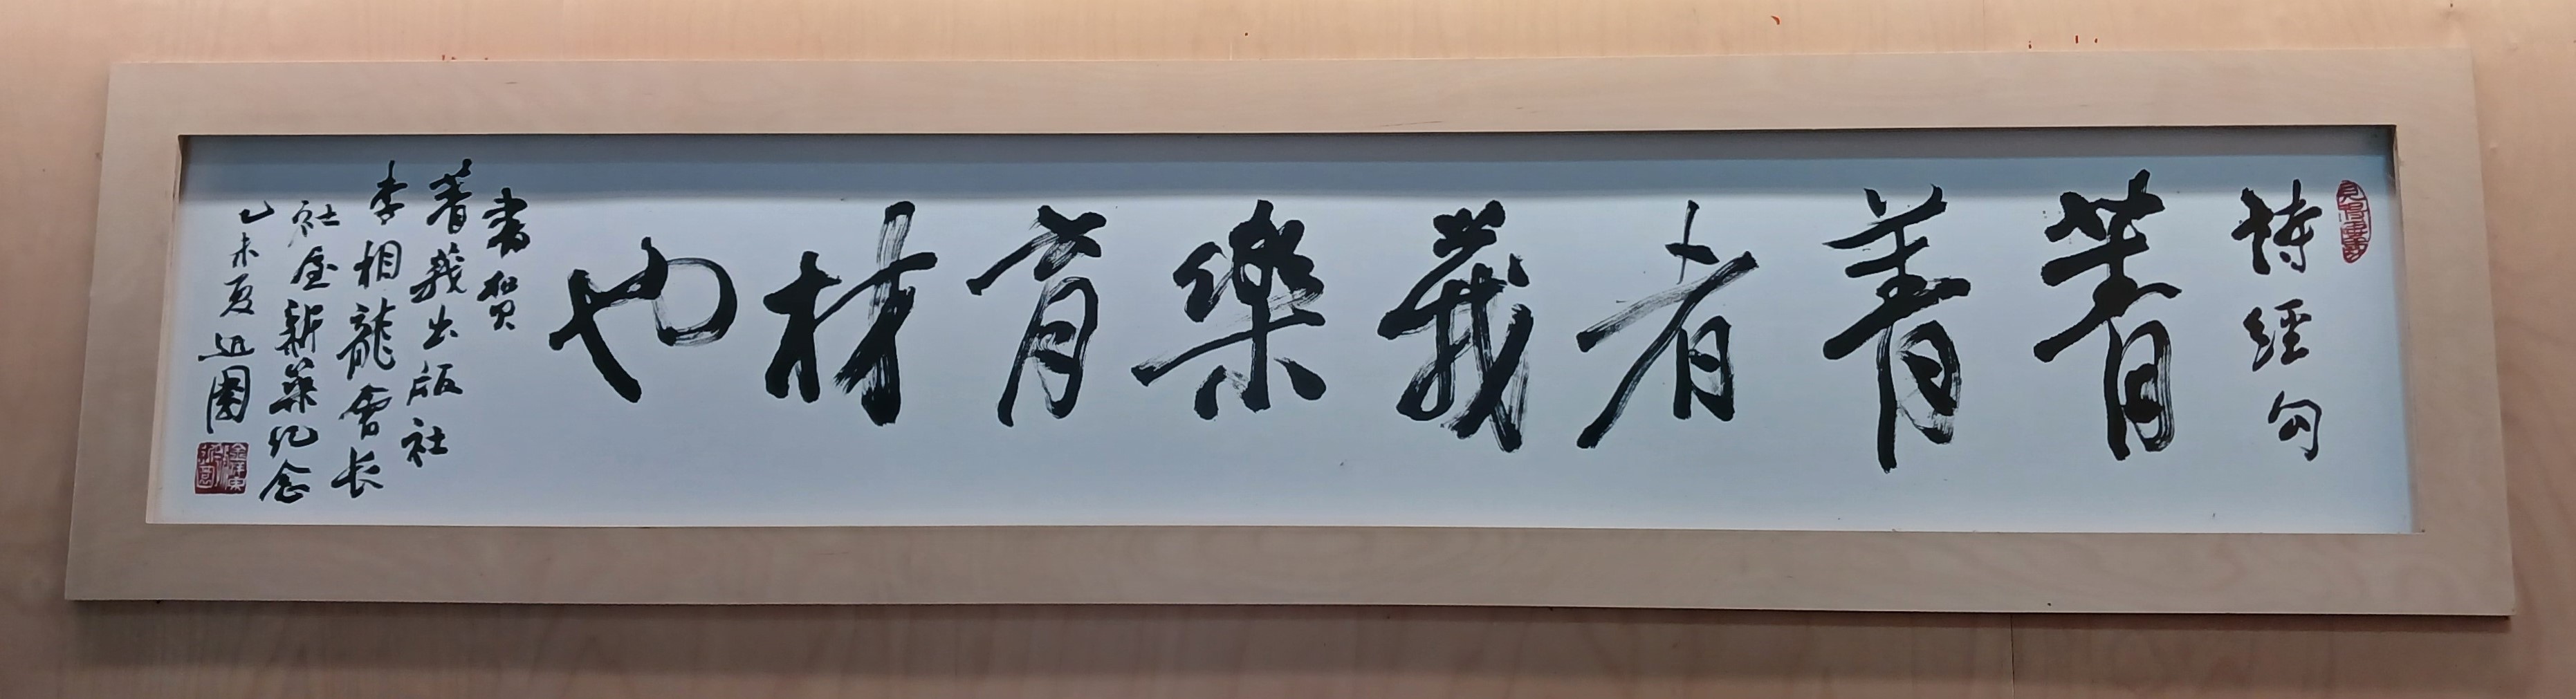 詩經句
菁菁者莪樂育材也
書賀
菁莪出版社
李相龍會长
社屋新築纪念
乙未夏 近園